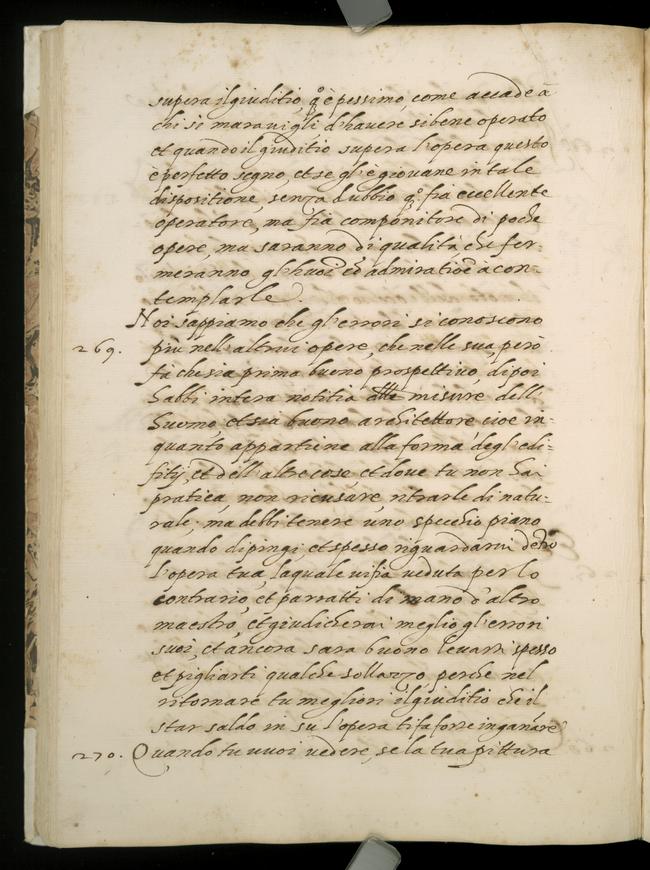 supera il giuditio, qº è pessimo, come accade à
chi si maravigli d'havere si bene operato
et quando il giuditio supera l'opera questo
è perfetto segno, et se gl'è giovane in tale
dispositione, senza dubbio qº fia eccellente
operatore, ma fia componitore di poche
opere, ma saranno di qualità che fer-
meranno gl'huoi ed admiratioē à con-
templarle.
Noi sappiamo che gl'errori si conoscono
269. più nell'altrui opere, che nelle sua, però
fà che sia prima buono prospettivo, di poi
habbi intera notitia alle misure dell'
huomo, et sia buono architettore cioè in-
quanto appartiene alla forma degl'edi-
fitij, et dell'altre cose, et dove tu non hai
pratica, non ricusare, ritrarle di natu-
rale; ma debbi tenere uno specchio piano
quando dipingi, et spesso riguardarvi detrº
l'opera tua, la quale vi fia veduta per lo
contrario, et parratti di mano d'altro
maestro, et giudicherai meglio gl'errori
suoi, et ancora sara buono levarsi spesso
et pigliarsi qualche sollazzo perche nel
ritornare tu megliori il giuditio che il
star saldo in su l'opera ti fa forte inganare
270. Quando tu vuoi vedere, se la tua pittura